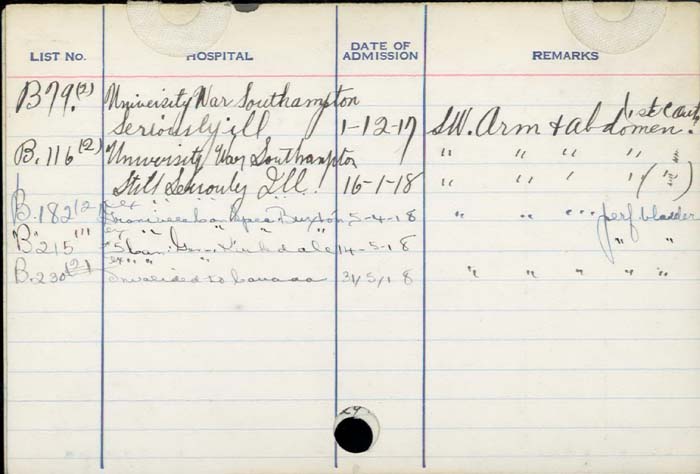 LIST No. HOSPITAL DATE OF ADMISSION REMARKS
B79.(2) University War Southampton
Seriously ill 1-12-17 S.W. Arm + abdomen.
B.116(2) University War Southampton " " " "
Still Seriously Ill. 16-1-18 " " " "
B.182(2) Buxton 5-4-18 " " " " perf bladder
B 215 Kirkdale 14-5-18 " "
B.230(2) Invalided to Canada 31/5/18 " " " " "